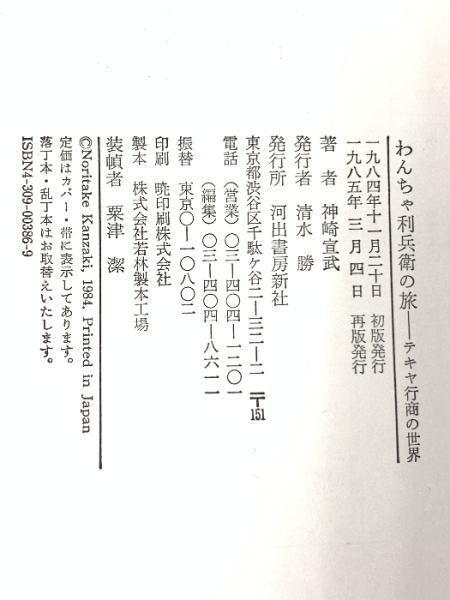 わんちゃ利兵衛の旅──テキヤ行商の世界
一九八四年十一月二十日 初版発行
一九八五年 三月 四日 再版発行
著者 神崎宣武
発行者 清水 勝
発行所 河出書房新社
東京都渋谷区千駄ケ谷二―三二―二 〒151
電話 (営業)〇三―四〇四―一二〇一
(編集)〇三―四〇四―八六一一
振替 東京〇―一〇八〇二
印刷 暁印刷株式会社
製本 株式会社若林製本工場
装幀者 粟津 潔
©Noritake Kanzaki, 1984. Printed in Japan
定価はカバー・帯に表示してあります。
落丁本・乱丁本はお取替えいたします。
ISBN4-309-00386-9